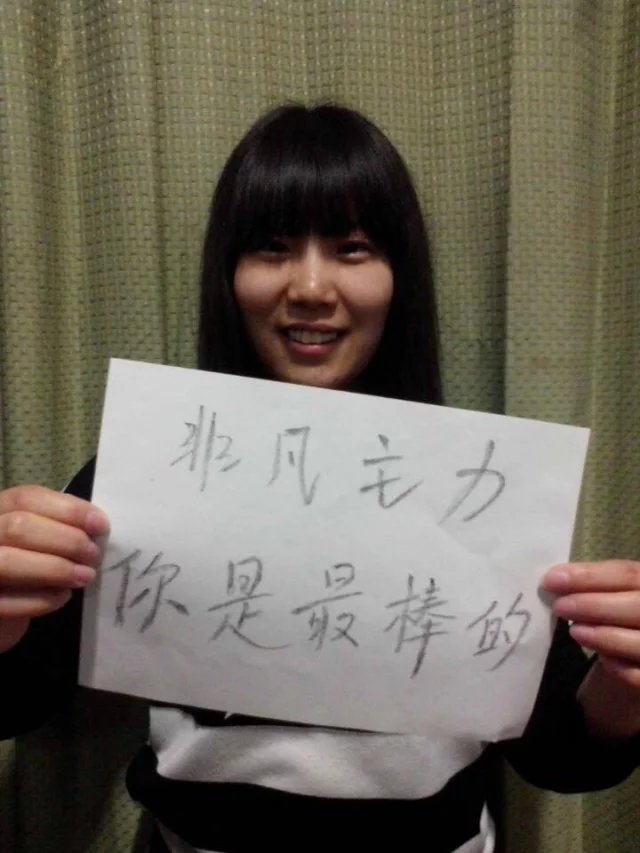 非凡主力
你是最棒的